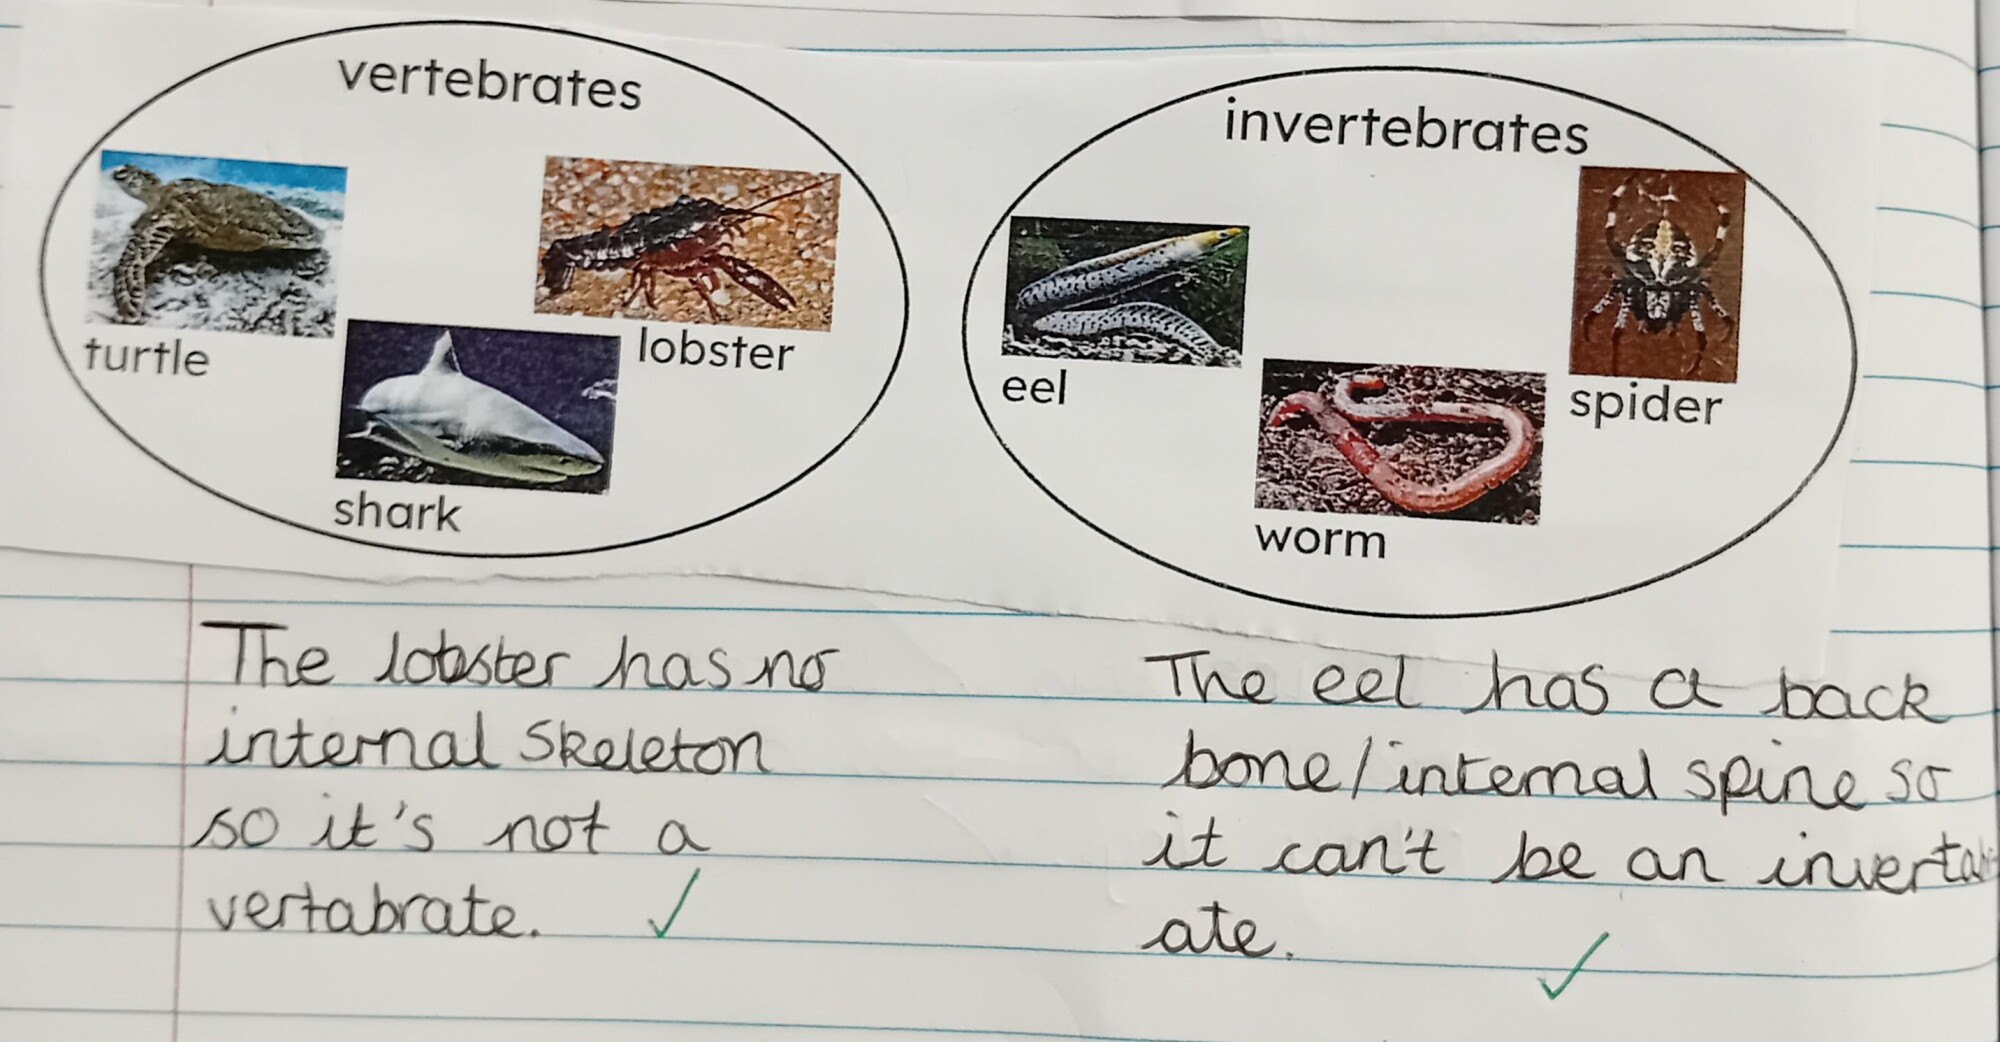 vertebrates
turtle
lobster
shark
invertebrates
eel
spider
worm
The lobster has no
internal skeleton
so it's not a
vertabrate.
The eel has a back
bone/internal spine so
it can't be an
ate.